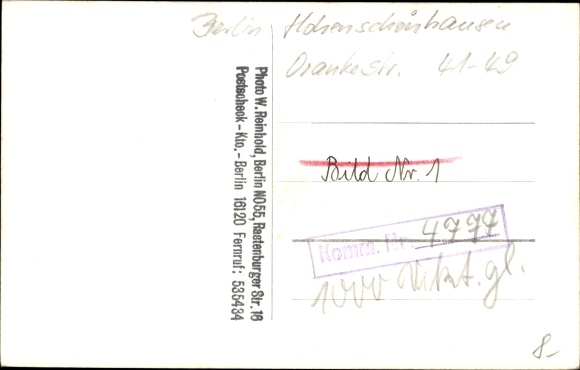 Berlin Hohenschönhausen
Orankestr. 41-49
Photo W. Reinhold, Berlin NO55, Rastenburger Str. 16
Postscheck-Kto.-Berlin 16120 Fernruf: 535434
Bild Nr. 1
Komm. Nr. 4777
1000 gl.
8-